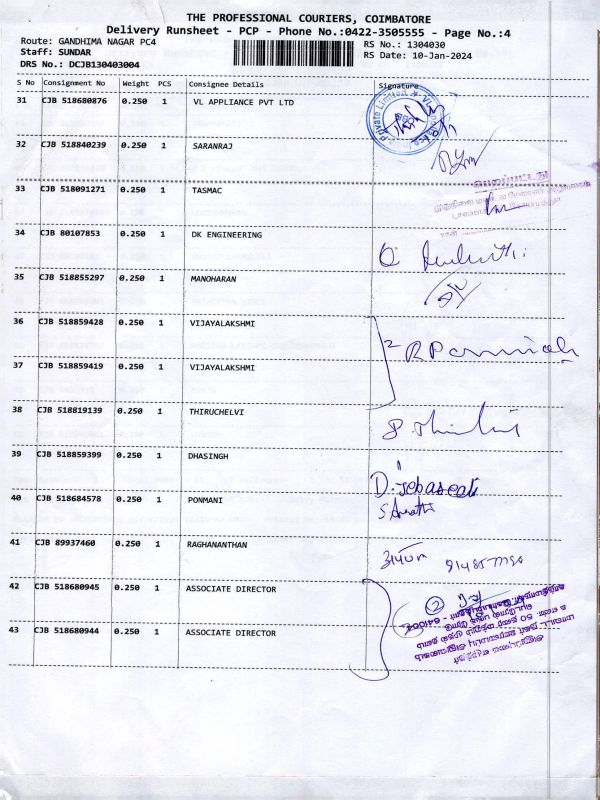 THE PROFESSIONAL COURIERS, COIMBATORE
Delivery Runsheet - PCP - Phone No.:0422-3505555 - Page No.:4
Route: GANDHIMA NAGAR PC4
Staff: SUNDAR
DRS No.: DCJB130403004
RS No.: 1304030
RS Date: 10-Jan-2024
S No Consignment No Weight PCS Consignee Details Signature
31 CJB 518680876 0.250 1 VL APPLIANCE PVT LTD
32 CJB 518840239 0.250 1 SARANRAJ
33 CJB 518091271 0.250 1 TASMAC
34 CJB 80107853 0.250 1 DK ENGINEERING
35 CJB 518855297 0.250 1 MANOHARAN
36 CJB 518859428 0.250 1 VIJAYALAKSHMI
2
37 CJB 518859419 0.250 1 VIJAYALAKSHMI
38 CJB 518819139 0.250 1 THIRUCHELVI
39 CJB 518859399 0.250 1 DHASINGH
40 CJB 518684578 0.250 1 PONMANI
41 CJB 89937460 0.250 1 RAGHANANTHAN
42 CJB 518680945 0.250 1 ASSOCIATE DIRECTOR
2
43 CJB 518680944 0.250 1 ASSOCIATE DIRECTOR